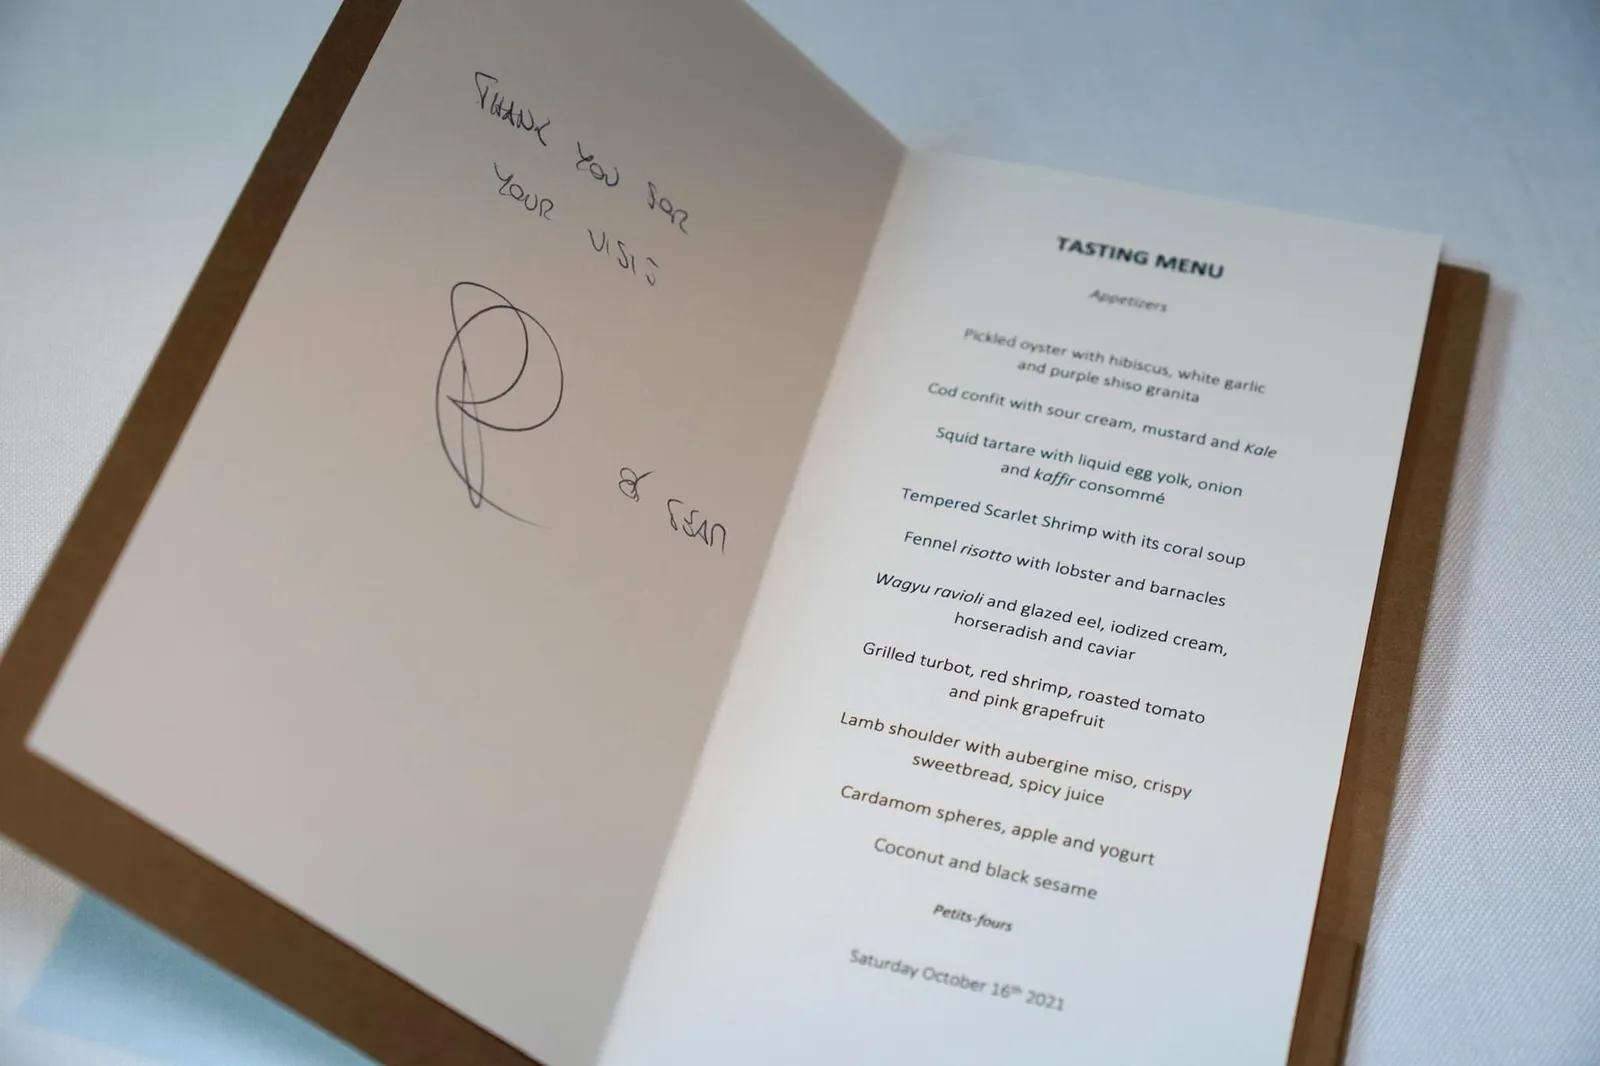 THANK YOU FOR
YOUR VISIT
& TEAM
TASTING MENU
Appetizers
Pickled oyster with hibiscus, white garlic
and purple shiso granita
Cod confit with sour cream, mustard and Kale
Squid tartare with liquid egg yolk, onion
and kaffir consommé
Tempered Scarlet Shrimp with its coral soup
Fennel risotto with lobster and barnacles
Wagyu ravioli and glazed eel, iodized cream,
horseradish and caviar
Grilled turbot, red shrimp, roasted tomato
and pink grapefruit
Lamb shoulder with aubergine miso, crispy
sweetbread, spicy juice
Cardamom spheres, apple and yogurt
Coconut and black sesame
Petits-fours
Saturday October 16th 2021